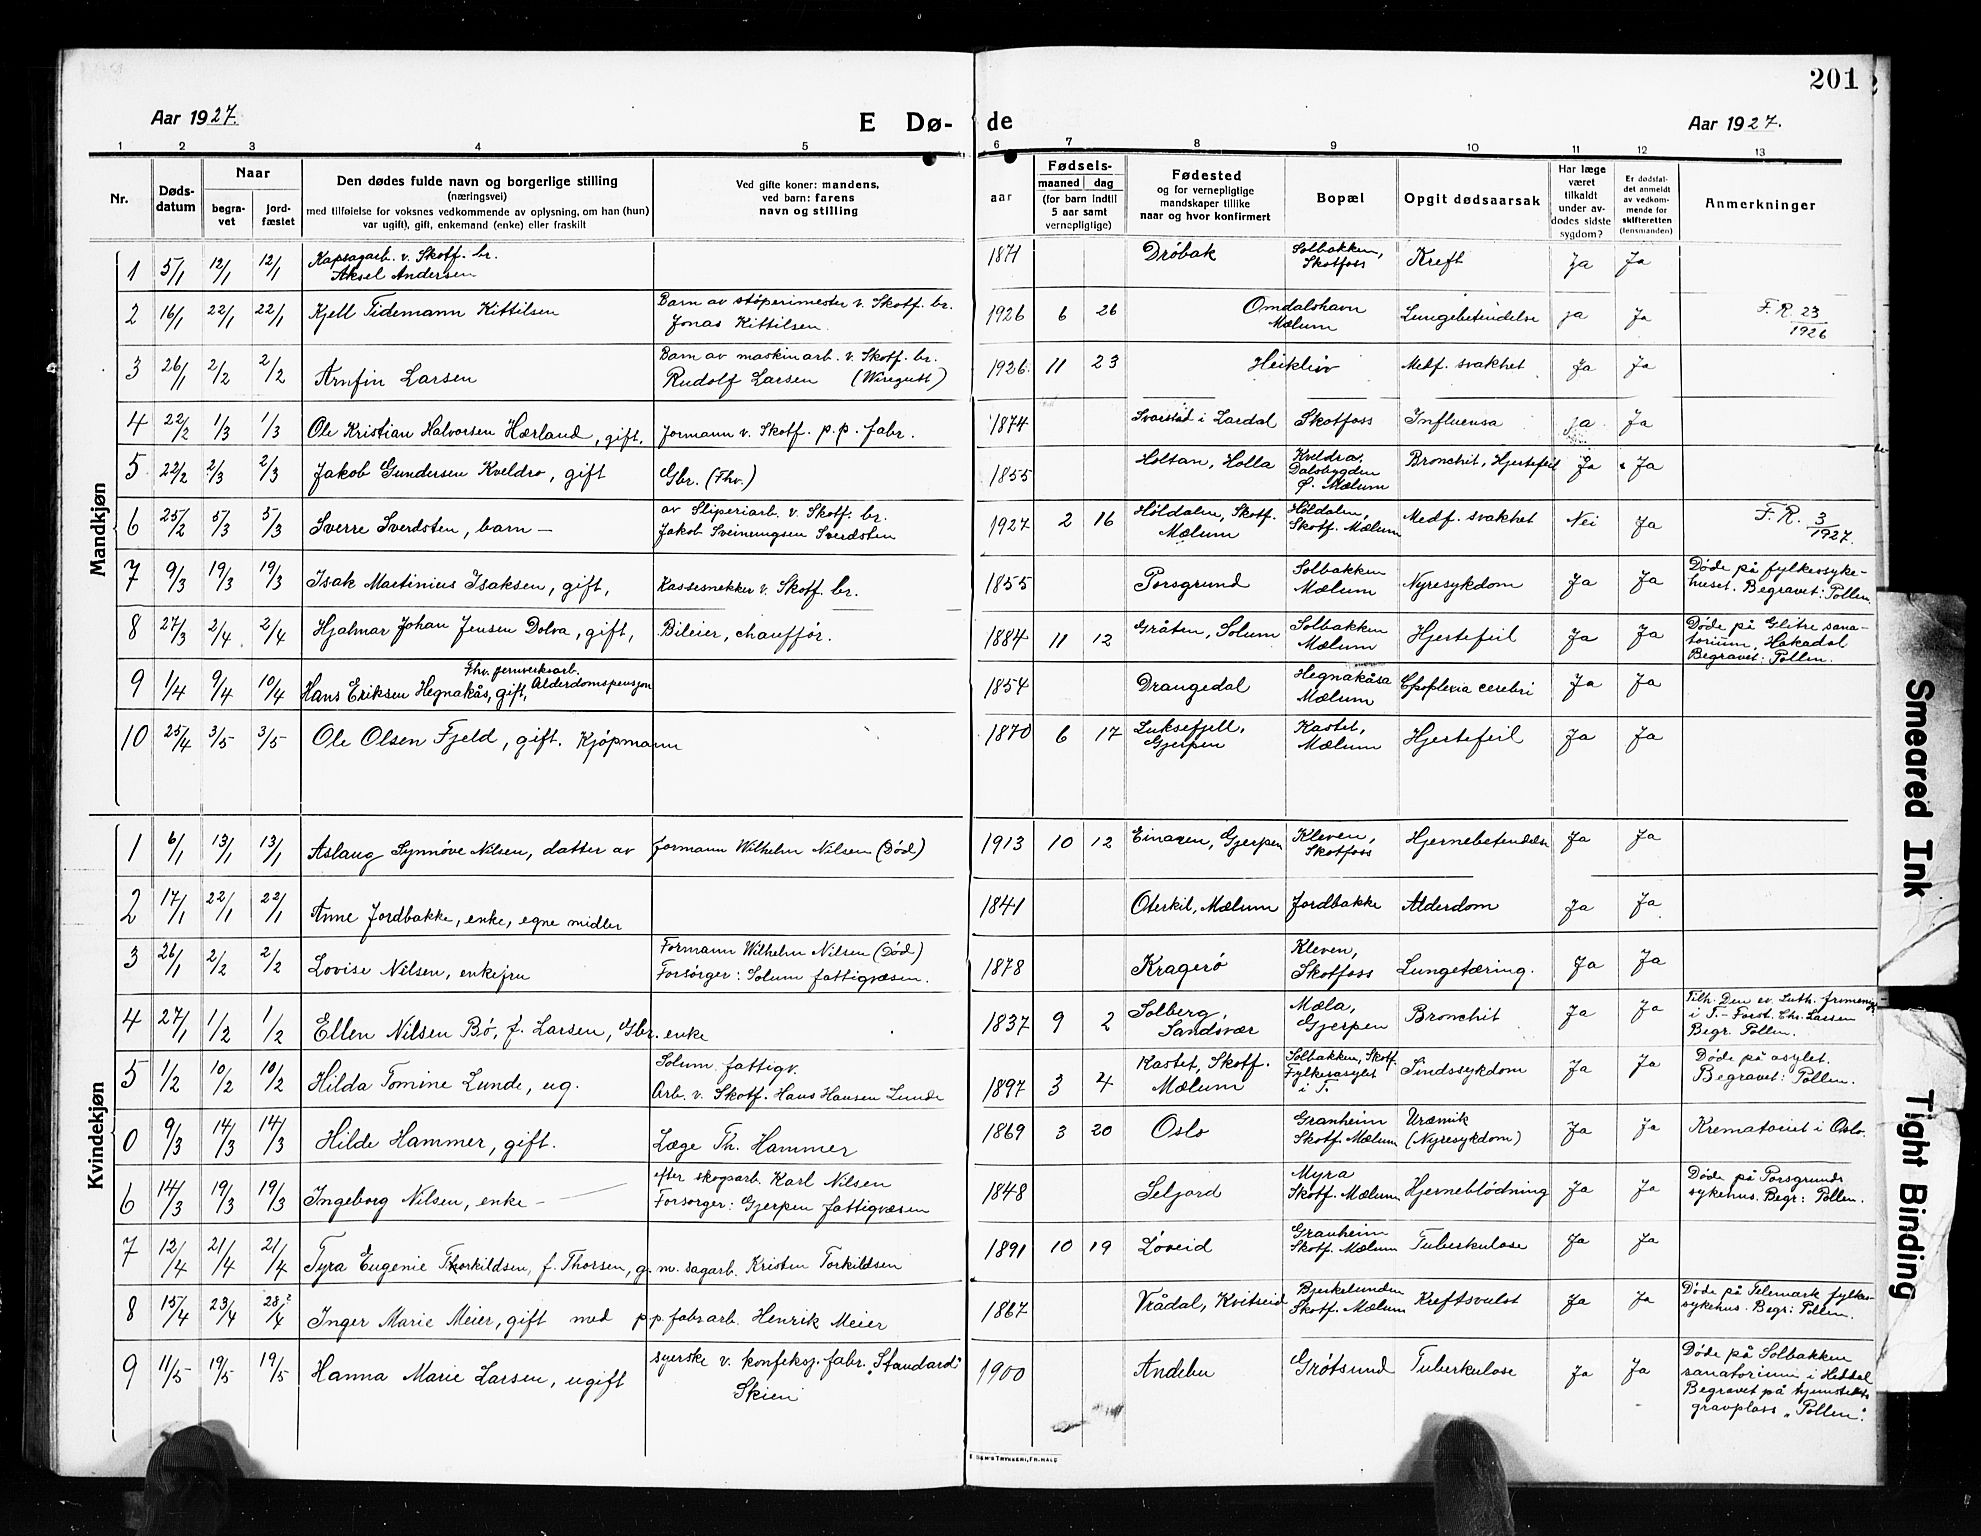 201
Aar 1927.
E Dø-
de
Aar 1927.
1 2 3 4 5 6 7 8 9 10 11 12 13
Nr.
Døds-
datum
Naar
begra-
vet
jord-
fæstet
Den dødes fulde navn og borgerlige stilling
(næringsvei)
med tilføielse for voksnes vedkommende av oplysning, om han (hun)
var ugift), gift, enkemand (enke) eller fraskilt
Ved gifte koner: mandens,
ved barn: farens
navn og stilling
aar
Fødsels-
maaned dag
(for barn indtil
5 aar samt
vernepligtige)
Fødested
og for vernepligtige
mandskaper tillike
naar og hvor konfirmert
Bopæl
Opgit dødsaarsak
Har læge
været
tilkaldt
under av-
dødes sidste
sygdom?
Er dødsfal-
det anmeldt
av vedkom-
mende for
skifteretten
(lensmanden)
Anmerkninger
Mandkjøn
1 5/1 12/1 12/1 Kapsagarb. v. Skotf. br.
Aksel Andersen 1871 Drøbak Solbakken,
Skotfoss Kreft Ja Ja
2 16/1 22/1 22/1 Kjell Tidemann Kittilsen Barn av støperimester v. Skotf. br.
Jonas Kittilsen. 1926 6 26 Omdalshavn
Mælum Lungebetendelse ja Ja F. R. 23/1926
3 26/1 2/2 2/2 Arnfin Larsen Barn av maskinarb. v. Skotf. br.
Rudolf Larsen (Wiregutt) 1926. 11 23 Heikleiv Medf. svakhet Ja Ja
4 22/2 1/3 1/3 Ole Kristian Halvorsen Hærland, gift. Formann v. Skotf. p.p. fabr. 1874 Svarstad i Lardal Skotfoss Influensa ja. Ja
5 22/2 2/3 2/3 Jakob Gundersen Kveldro, gift Gbr. (Fhv.) 1855 Holtan, Holla Kveldra,
Dalsbygden
Ø. Mælum Bronchit, Hjertefeil Ja Ja
6 25/2 5/3 5/3 Sverre Sverdsten, barn — av Sliperiarb. v. Skotf. br.
Jakob Sveinungsen Sverdsten 1927 2 16 Høldalen, Skotf.
Mælum Høldalen,
Skotf. Mælum Medf. svakhet Nei Ja F. R. 3/1927.
7 9/3 19/3 19/3 Isak Martinius Isaksen, gift, Kassesnekker v. Skotf. br. 1855 Porsgrund Solbakken
Mælum Nyresykdom Ja Ja Døde på fylkessyke-
huset. Begravet: Pollen.
8 27/3 2/4 2/4 Hjalmar Johan Jensen Dolva, gift, Bileier, chauffør. 1884 11 12 Gråten, Solum Solbakken
Mælum Hjertefeil Ja Ja Døde på Glitre sana-
torium, Hakadal
Begravet: Pollen.
9 1/4 9/4 10/4 Fhv. jernverksarb.
Hans Eriksen Hegnakås, gift, Alderdomspensjon 1854 Drangedal Hegnakåsa
Mælum Apoplexia cerebri Ja Ja
10 25/4 3/5 3/5 Ole Olsen Fjeld, gift. Kjøpmann 1870 6 17 Luksefjell,
Gjerpen Kastet,
Mælum Hjertefeil Ja Ja
Kvindekjøn
1 6/1 13/1 13/1 Aslaug Synnøve Nilsen, datter av formann Wilhelm Nilsen (Død) 1913 10 12 Einaren, Gjerpen Kleven,
Skotfoss Hjernebetendelse Ja Ja
2 17/1 22/1 22/1 Anne Jordbakke, enke, egne midler 1841 Oterkil, Mælum Jordbakke Alderdom Ja Ja
3 26/1 2/2 2/2 Lovise Nilsen, enkefru Formann Wilhelm Nilsen (Død)
Forsørger: Solum fattigvæsen. 1878 Kragerø Kleven,
Skotfoss Lungetæring. Ja Ja
4 27/1 1/2 1/2 Ellen Nilsen Bø, f. Larsen, Gbr. enke 1837 9 2 Solberg,
Sandsvær Mæla,
Gjerpen Bronchit Ja Ja Tilh. Den ev. Luth. frimenigh.
i T.- Forst. Chr. Larsen
Begr. Pollen.
5 1/2 10/2 10/2 Hilda Tomine Lunde, ug. Solum fattigv.
Arb. v. Skotf. Hans Hansen Lunde 1897 3 4 Kastet, Skotf.
Mælum Solbakken, Skotf.
Fylkesasylet
i T. Sindssykdom Ja Ja Døde på asylet.
Begravet: Pollen.
0 9/3 14/3 14/3 Hilde Hammer, gift. Læge Th. Hammer 1869 3 20 Oslo Granheim
Skotf. Mælum Uræmik
(Nyresykdom) Ja Ja Krematoriet i Oslo.
6 14/3 19/3 19/3 Ingeborg Nilsen, enke — efter skogsarb. Karl Nilsen
Forsorger: Gjerpen fattigvæsen 1848 Seljord Myra
Skotf. Mælum Hjerneblödning Ja Ja Døde på Porsgrunds
sykehus. Begr: Pollen.
7 12/4 21/4 21/4 Tyra Eugenie Thorkildsen, f. Thorsen, g. m. sagarb. Kristen Torkildsen 1891 10 19 Løveid Granheim
Skotf. Mælum Tuberkulose Ja Ja
8 15/4 23/4 28/4 ? Inger Marie Meier, gift med p.p. fabr arb. Henrik Meier 1867 Vrådal, Kvitseid Bjerkelunden
Skotf. Mælum Kreftsvulst Ja Ja Døde på Telemark fylkes-
sykehus. Begr: Pollen.
9 11/5 19/5 19/5 Hanna Marie Larsen, ugift syerske v. konfeksj. fabr. "Standard"
Skien 1900 Andebu Grøtsund Tuberkulose Ja Ja Døde på Solbakken
sanatorium i Heddal
Begravet på hjemstedets
gravplass "Pollen".
Smeared Ink
Tight Binding